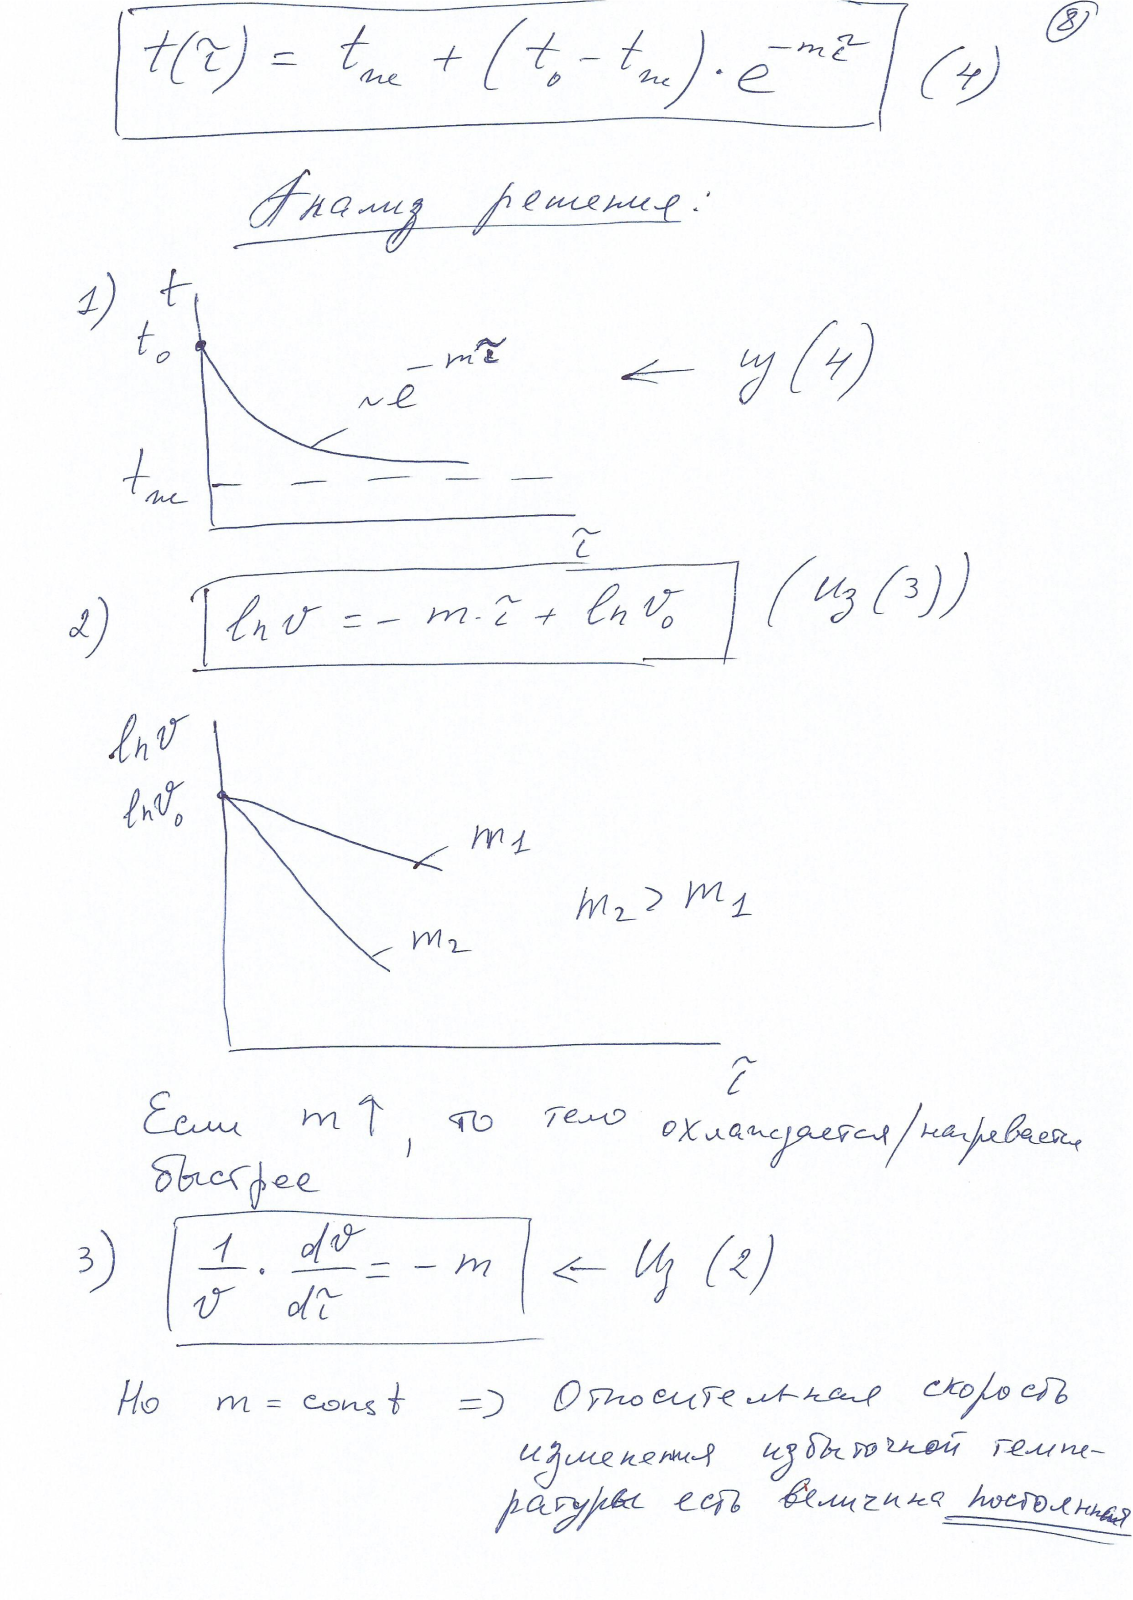 8
t(τ) = t_ж + (t_0 - t_ж) · e^{-mτ} (4)
Анализ решения:
1) t
t_0
~e^{-mτ} ← из (4)
t_ж
τ
2) ln ϑ = - m·τ + ln ϑ_0 (Из (3))
ln ϑ
ln ϑ_0
m_1
m_2 > m_1
m_2
τ
Если m↑, то тело охлаждается/нагревается
быстрее
3) 1/ϑ · dϑ/dτ = - m ← Из (2)
Но m = const => Относительная скорость
изменения избыточной темпе-
ратуры есть величина постоянная